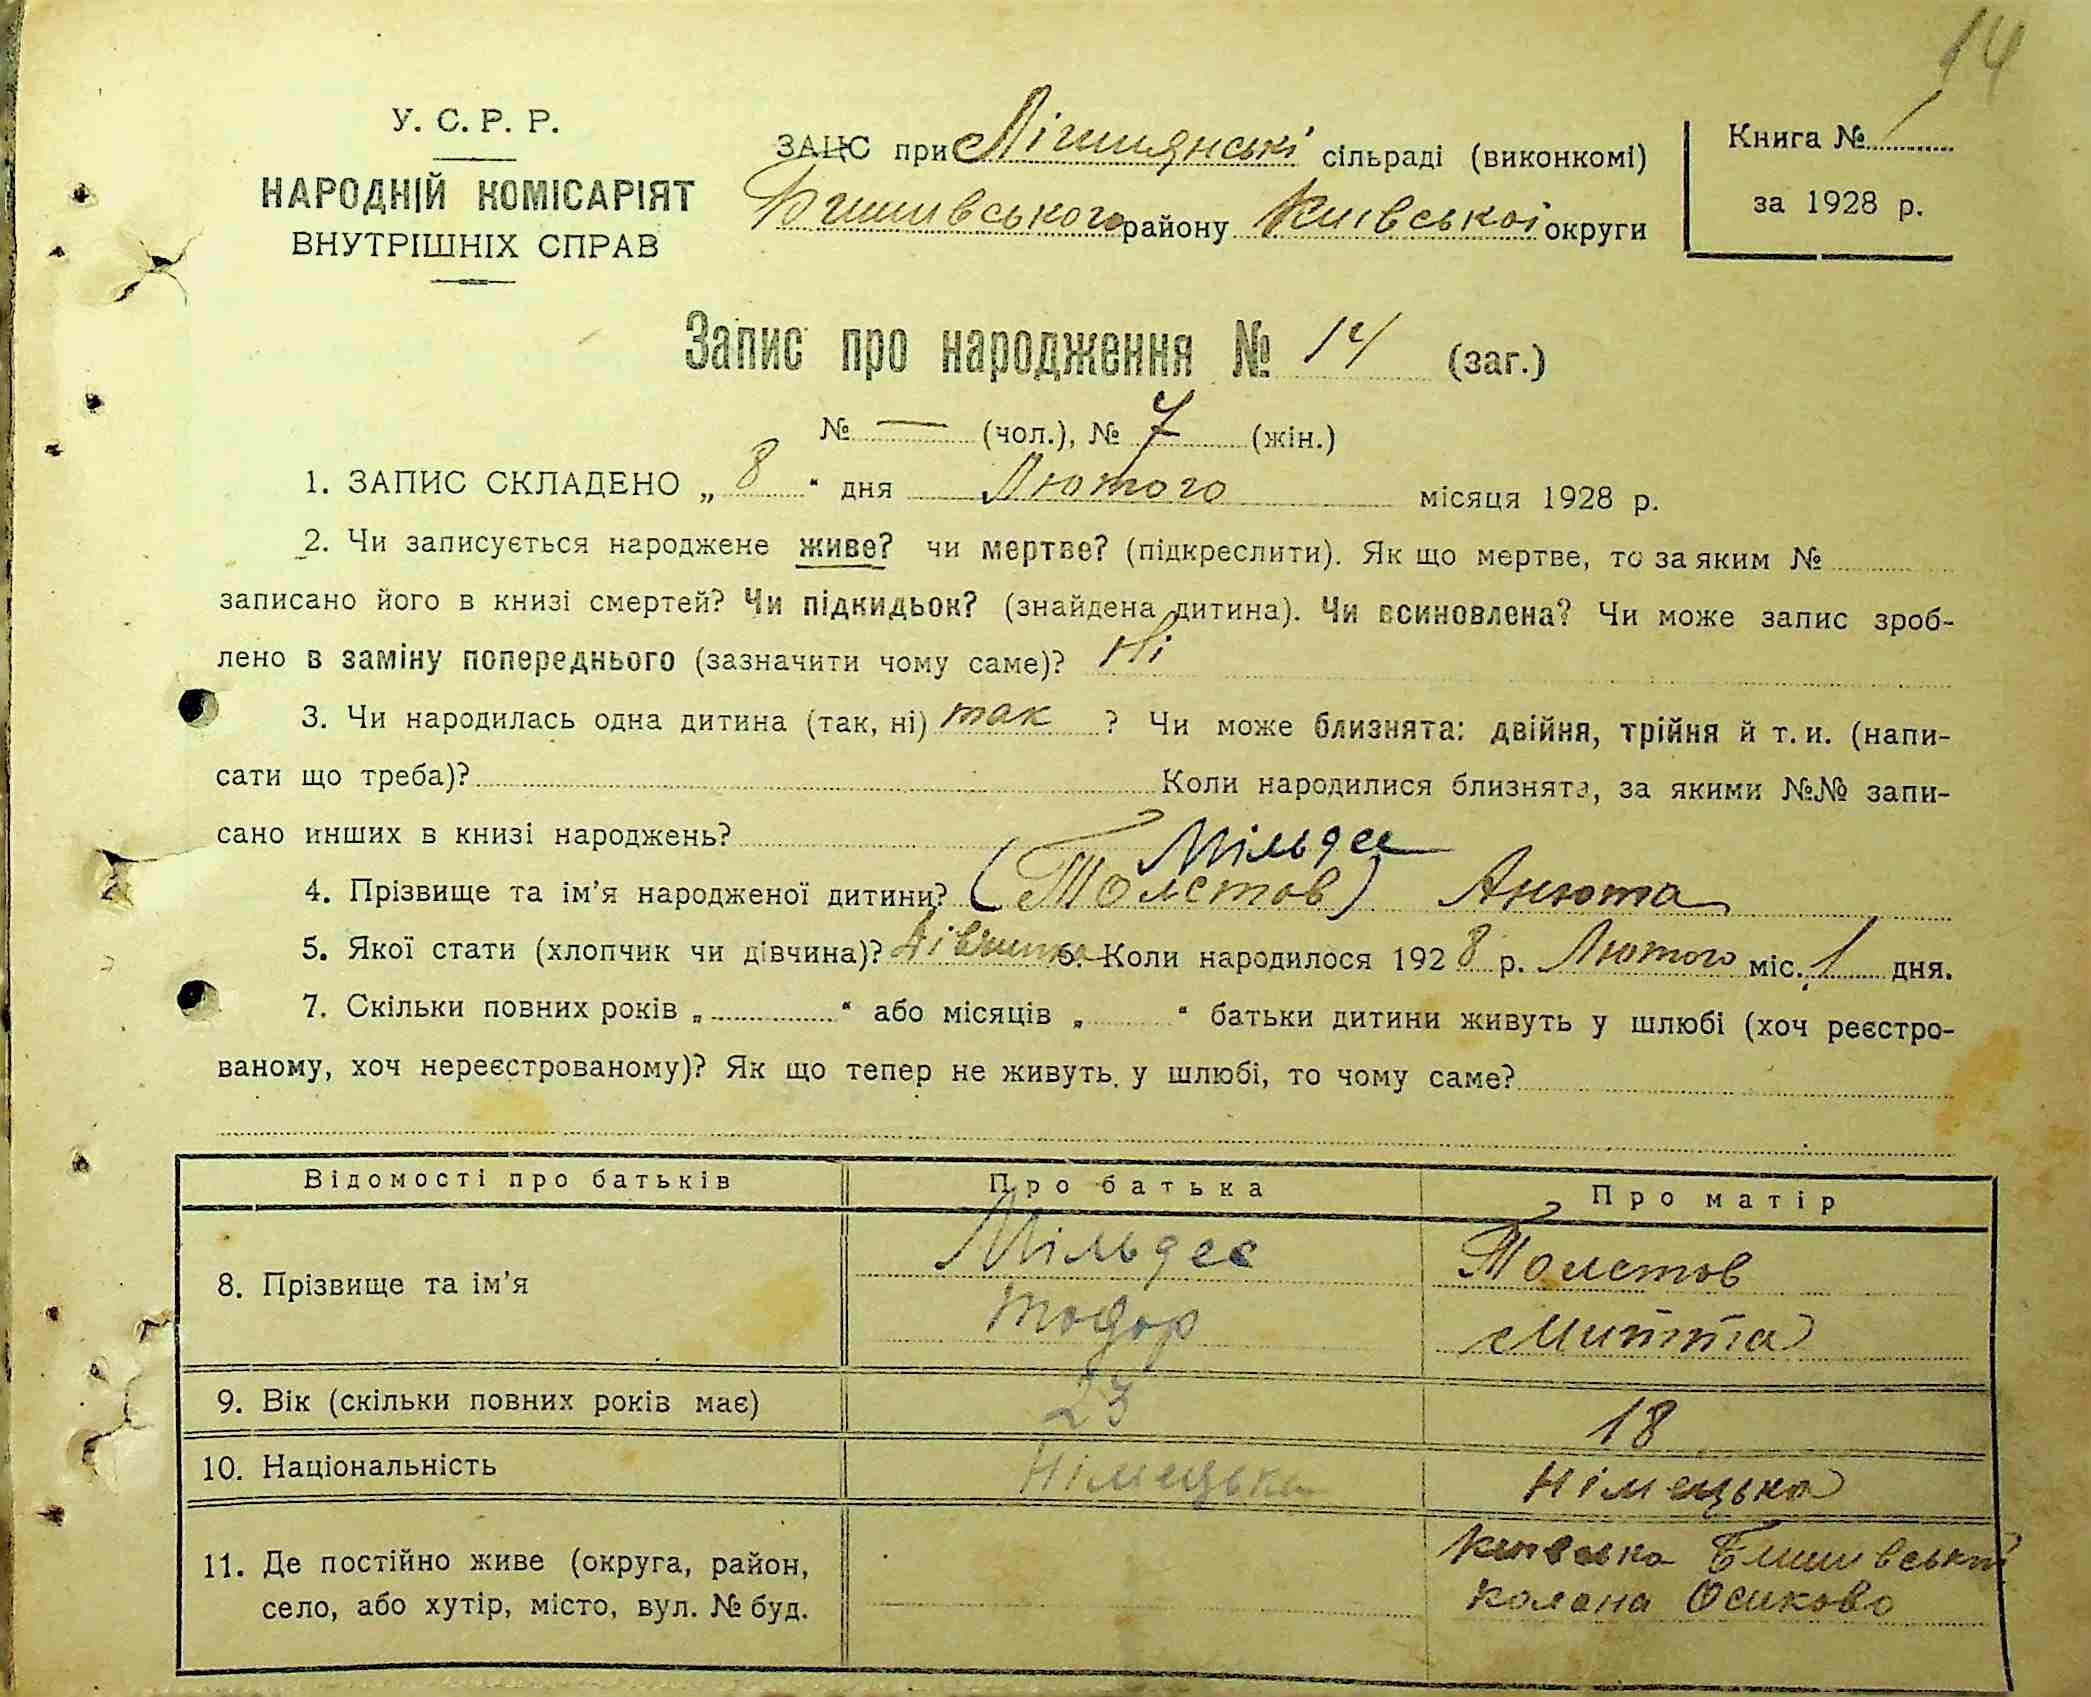 14
У. С. Р. Р.
НАРОДНІЙ КОМІСАРІЯТ
ВНУТРІШНІХ СПРАВ
ЗАЦС при Лішнянські сільраді (виконкомі)
Бишивського району Київської округи
Книга № 1
за 1928 р.
Запис про народження № 14 (заг.)
№ — (чол.), № 7 (жін.)
1. ЗАПИС СКЛАДЕНО „ 8 “ дня Лютого місяця 1928 р.
2. Чи записується народжене живе? чи мертве? (підкреслити). Як що мертве, то за яким №
записано його в книзі смертей? Чи підкидьок? (знайдена дитина). Чи всиновлена? Чи може запис зроб-
лено в заміну попереднього (зазначити чому саме)? Ні
3. Чи народилась одна дитина (так, ні) так ? Чи може близнята: двійня, трійня й т. и. (напи-
сати що треба)? Коли народилися близнята, за якими №№ запи-
сано инших в книзі народжень?
Мільдес
4. Прізвище та ім'я народженої дитини? (Толстов) Анюта
5. Якої стати (хлопчик чи дівчина)? дівчина 6. Коли народилося 1928 р. Лютого міс. 1 дня.
7. Скільки повних років „ “ або місяців „ “ батьки дитини живуть у шлюбі (хоч реєстро-
ваному, хоч нереєстрованому)? Як що тепер не живуть у шлюбі, то чому саме?
Відомості про батьків Про батька Про матір
8. Прізвище та ім'я Мільдес Толстов
Тодор Митта
9. Вік (скільки повних років має) 23 18
10. Національність Німецька Німецька
11. Де постійно живе (округа, район,
село, або хутір, місто, вул. № буд.
Київська Бишивський
Колона Осиково